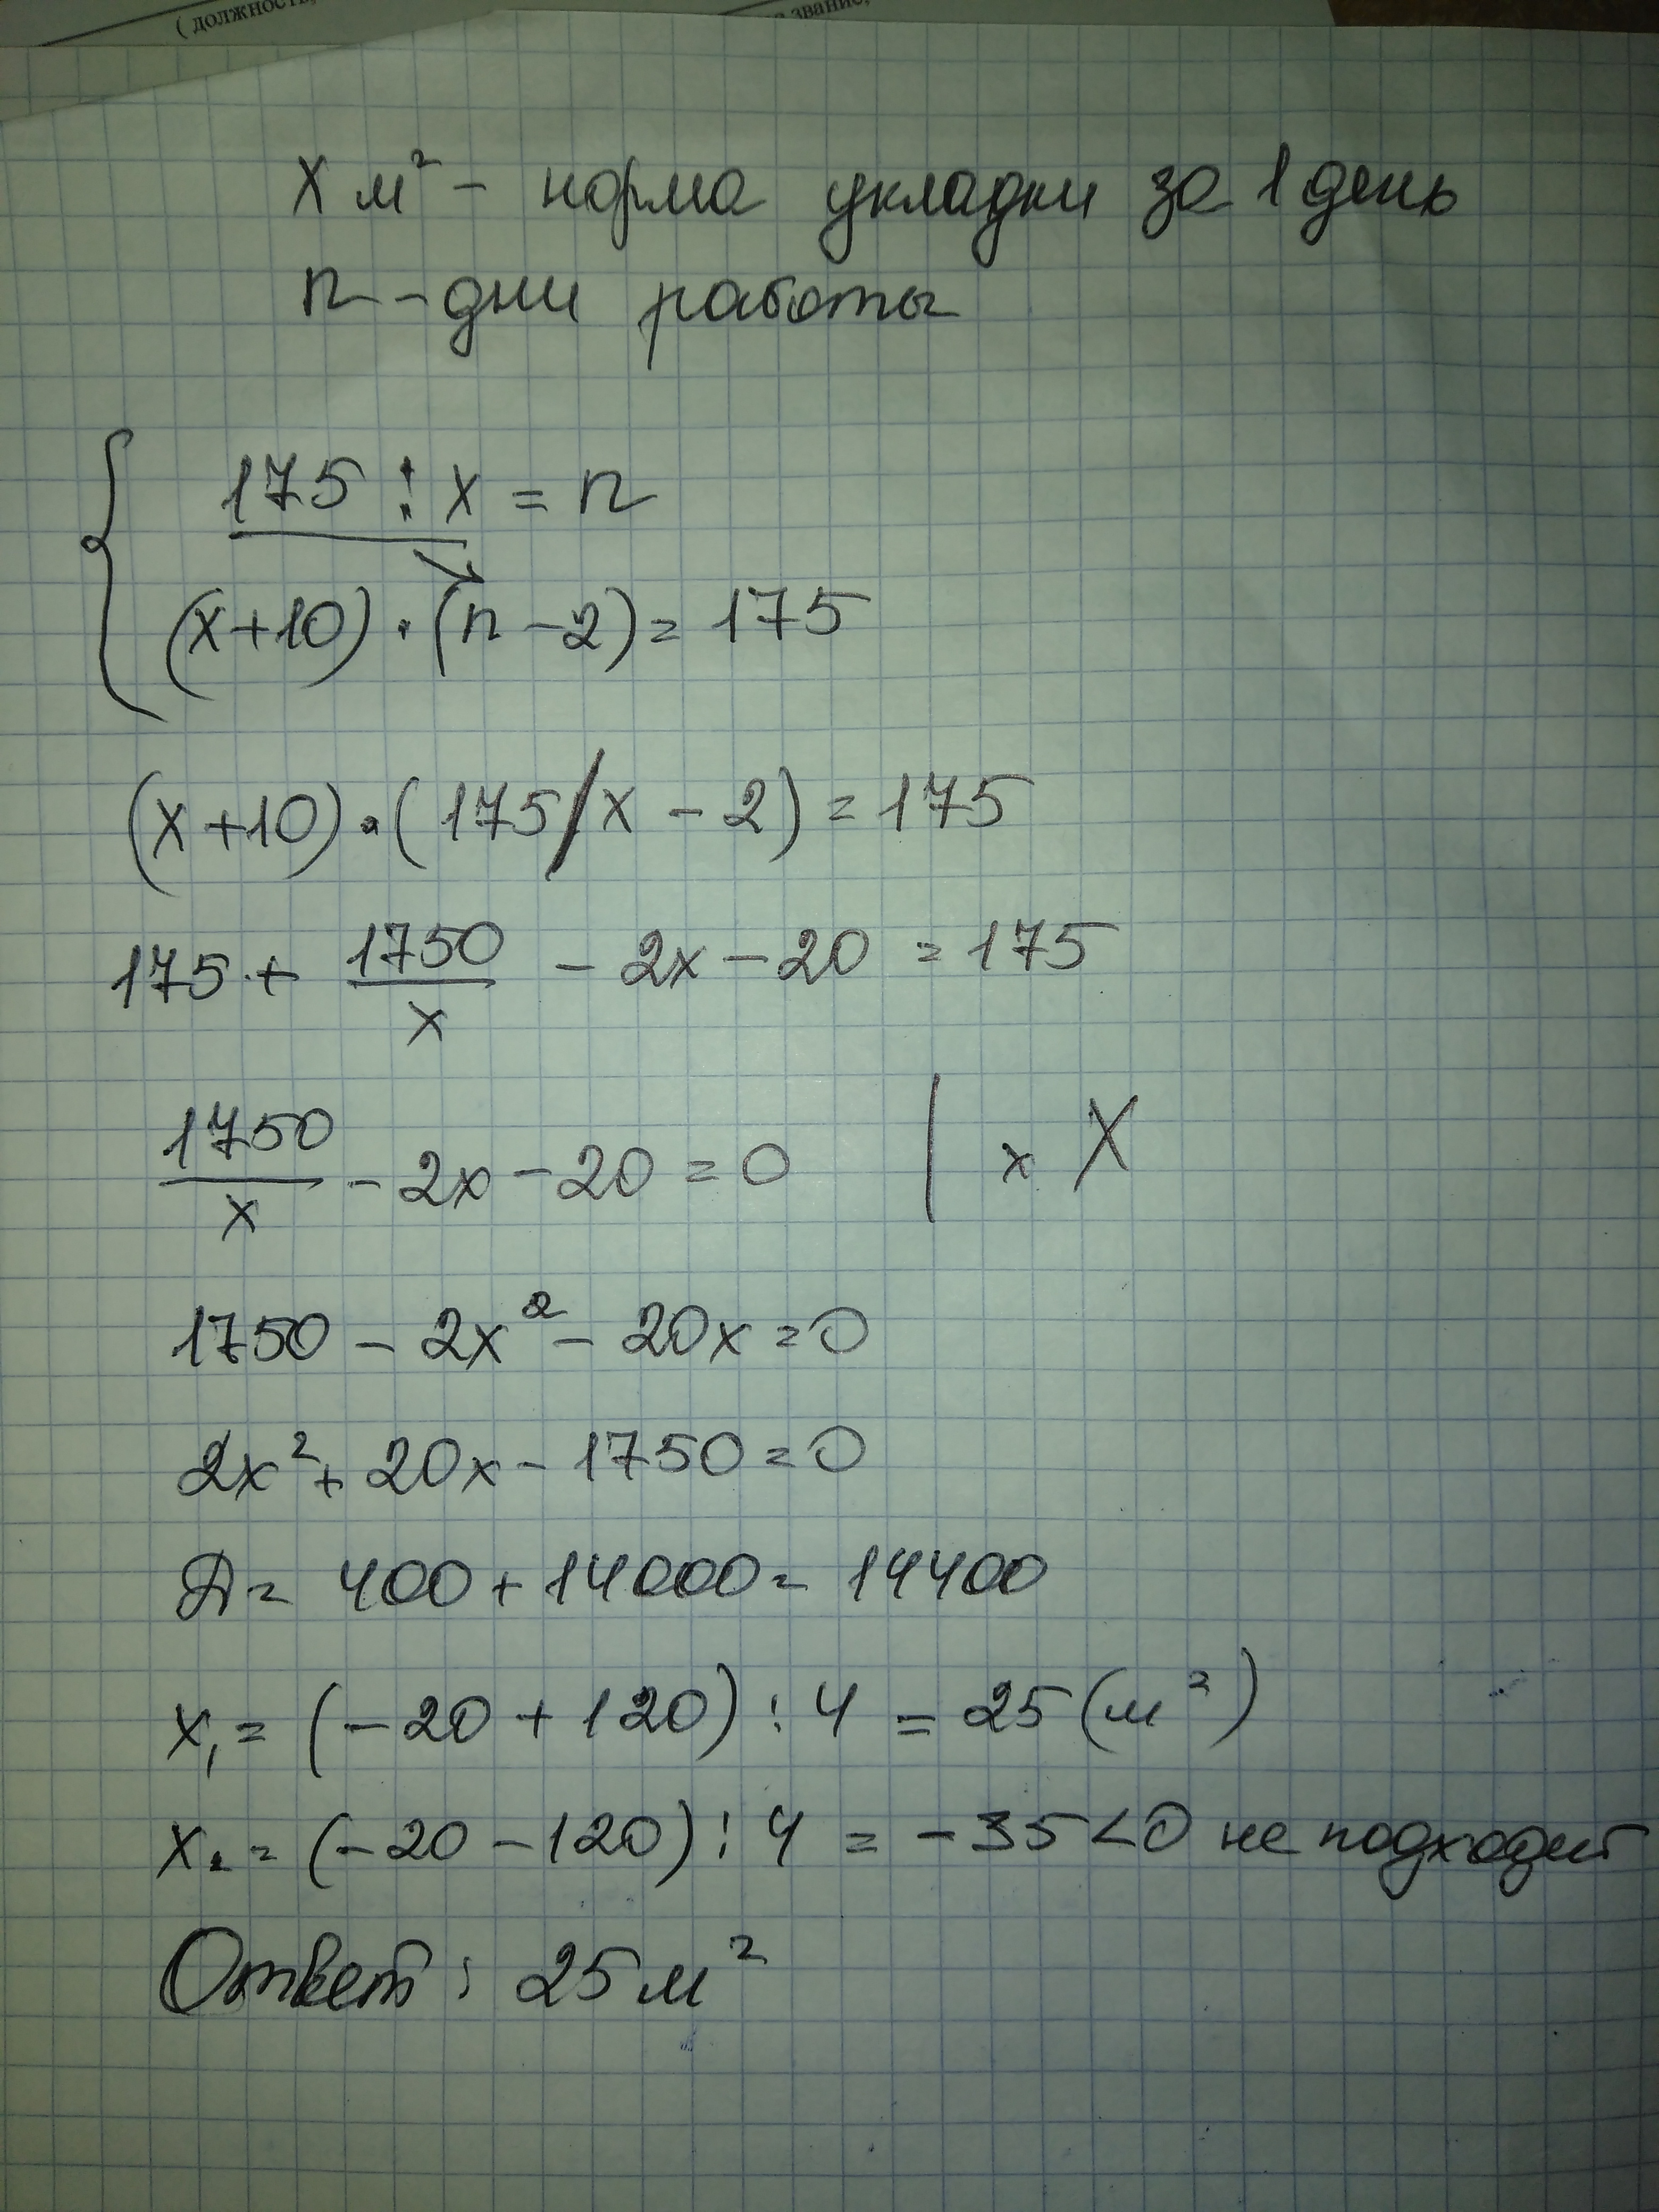 ( должность,
звание,
x м² - норма укладки за 1 день
n - дни работы
175 : x = n
(x+10) · (n - 2) = 175
(x+10) · (175/x - 2) = 175
175 + 1750/x - 2x - 20 = 175
1750/x - 2x - 20 = 0 | x X
1750 - 2x² - 20x = 0
2x² + 20x - 1750 = 0
Д = 400 + 14000 = 14400
x₁ = (-20 + 120) : 4 = 25 (м²)
x₂ = (-20 - 120) : 4 = -35 < 0 не подходит
Ответ : 25 м²